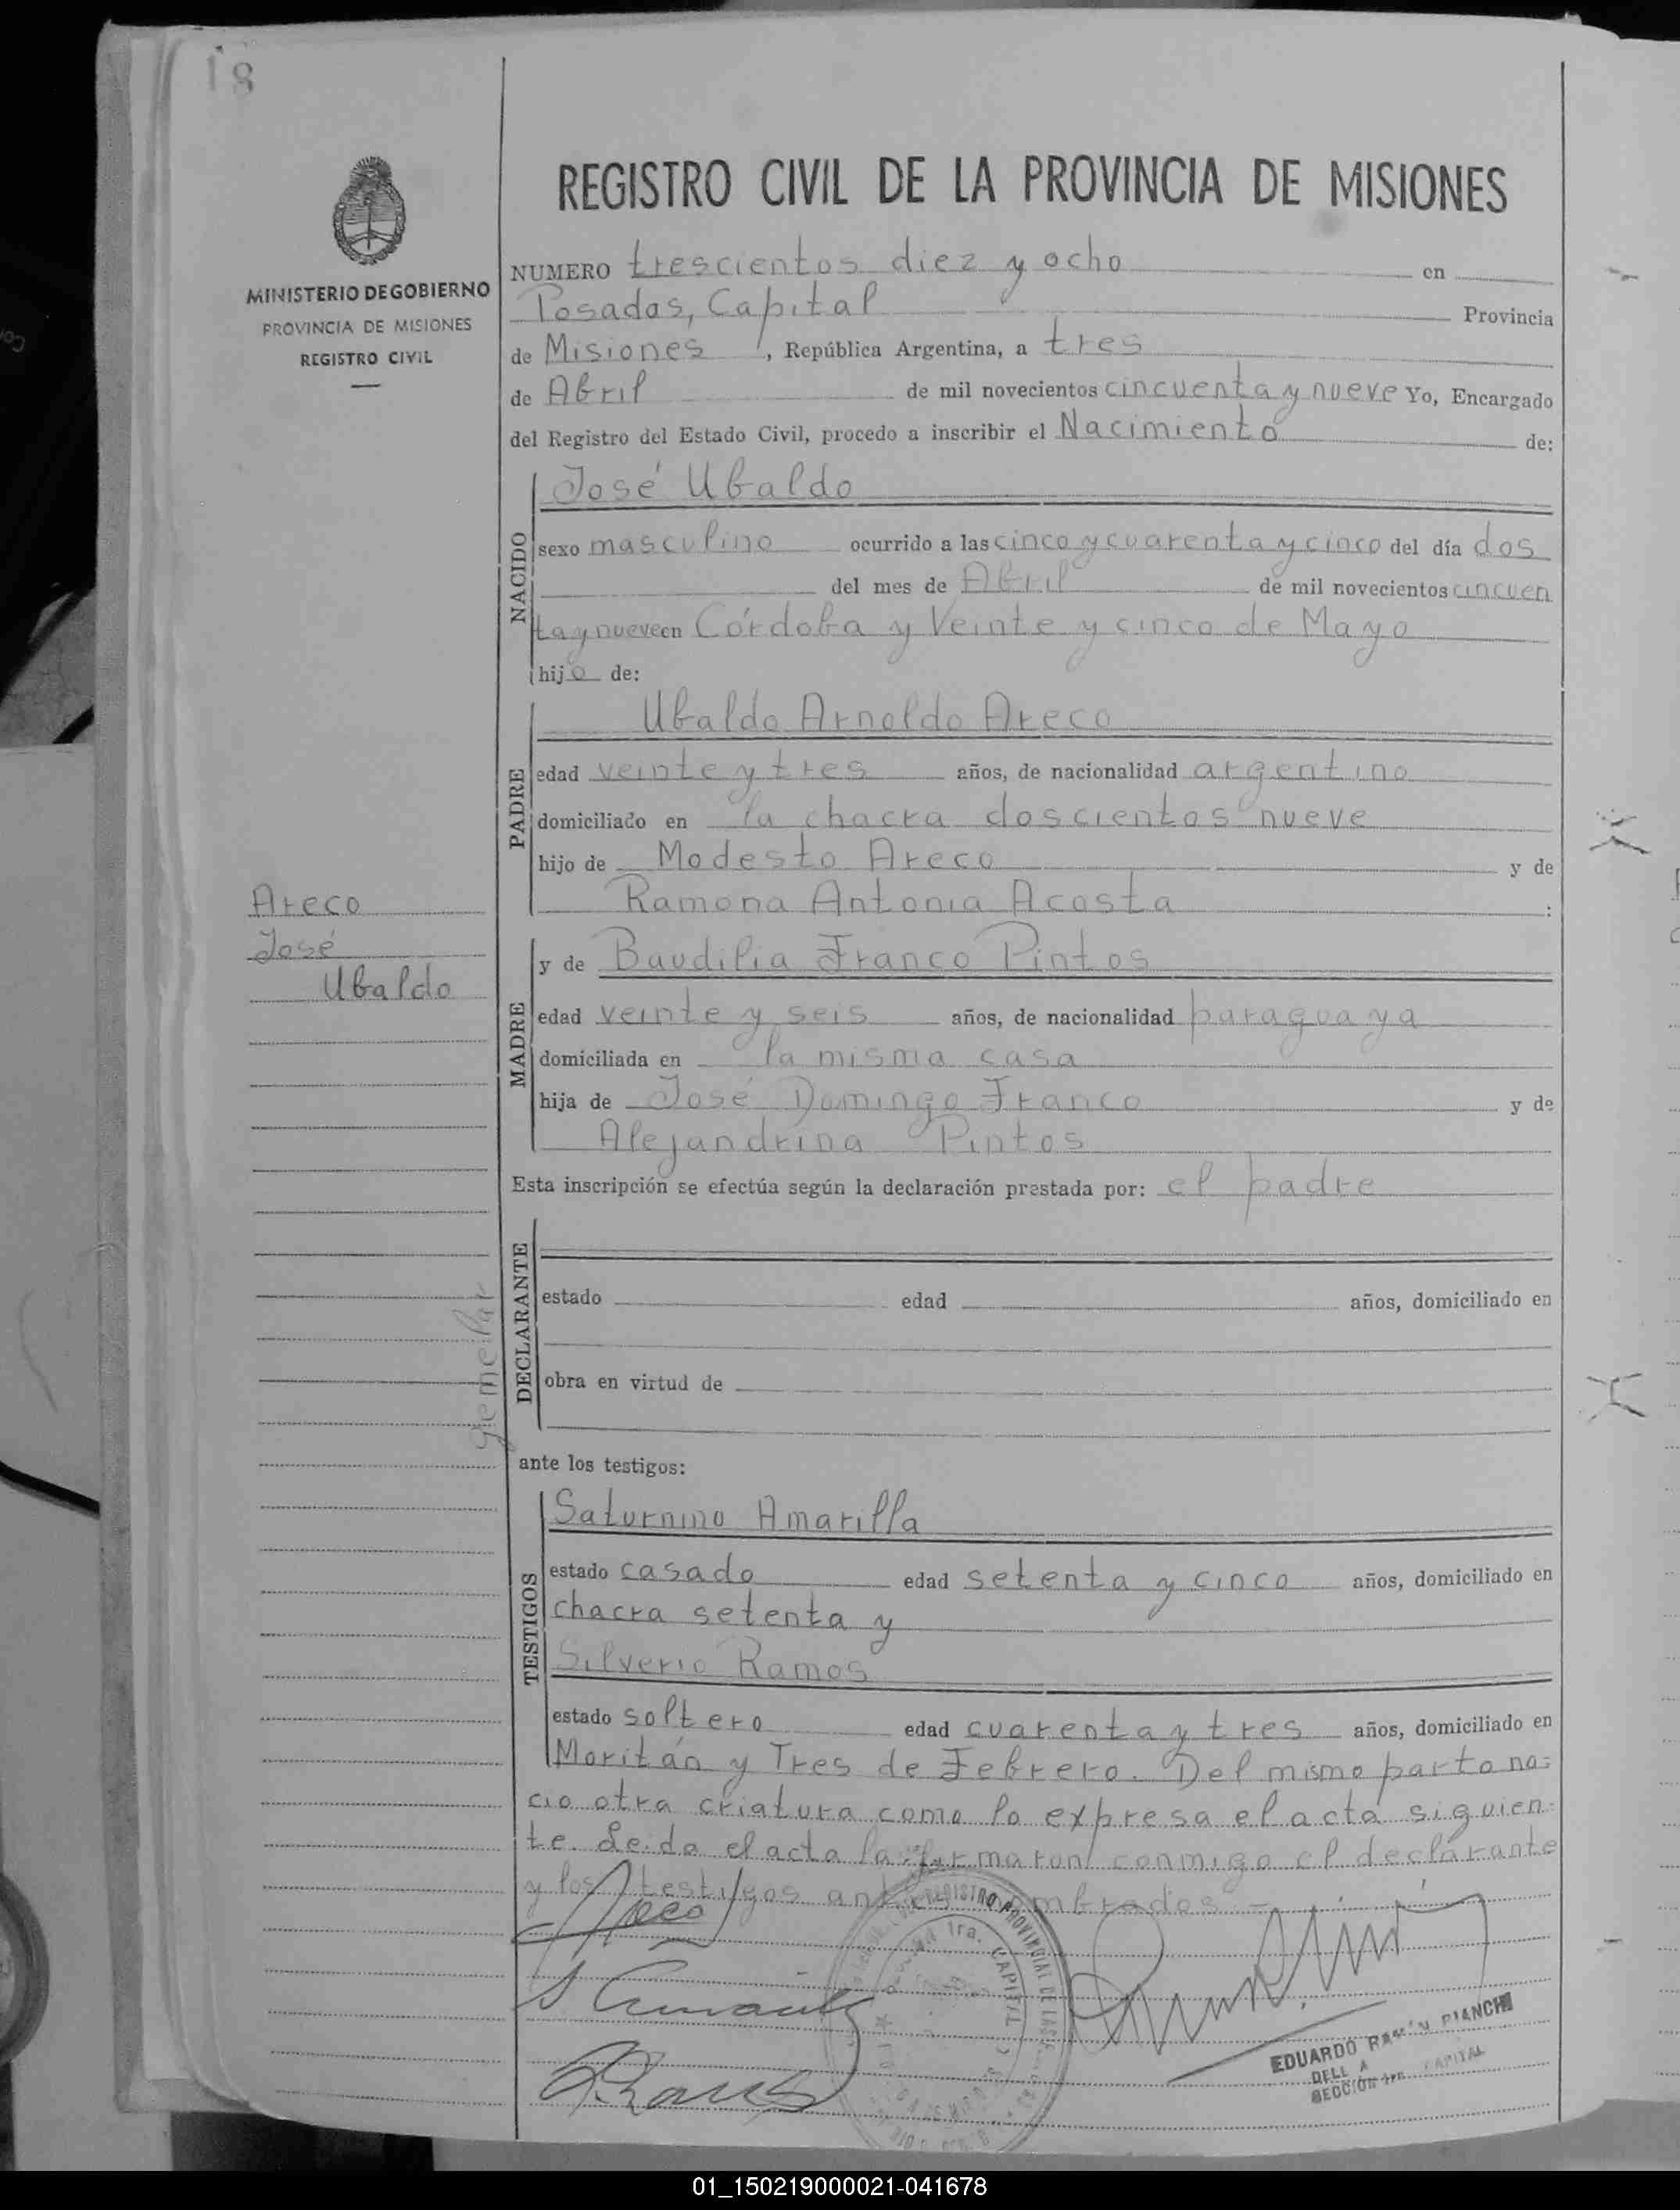 18
MINISTERIO DE GOBIERNO
PROVINCIA DE MISIONES
REGISTRO CIVIL
REGISTRO CIVIL DE LA PROVINCIA DE MISIONES
NUMERO trescientos diez y ocho en
Posadas, Capital Provincia
de Misiones, República Argentina, a tres
de Abril de mil novecientos cincuenta y nueve Yo, Encargado
del Registro del Estado Civil, procedo a inscribir el Nacimiento de:
NACIDO
José Ubaldo
sexo masculino ocurrido a las cinco y cuarenta y cinco del día dos
del mes de Abril de mil novecientos cincuen
ta y nueve en Córdoba y Veinte y cinco de Mayo
hijo de:
PADRE
Ubaldo Arnoldo Areco
edad veinte y tres años, de nacionalidad argentino
domiciliado en la chacra doscientos nueve
hijo de Modesto Areco y de
Ramona Antonia Acosta :
Areco
José
Ubaldo
MADRE
y de Baudilia Franco Pintos
edad veinte y seis años, de nacionalidad paraguaya
domiciliada en la misma casa
hija de José Domingo Franco y de
Alejandrina Pintos
Esta inscripción se efectúa según la declaración prestada por: el padre
gemelar
DECLARANTE
estado edad años, domiciliado en
obra en virtud de
ante los testigos:
TESTIGOS
Saturnino Amarilla
estado casado edad setenta y cinco años, domiciliado en
chacra setenta y
Silverio Ramos
estado soltero edad cuarenta y tres años, domiciliado en
Moritán y Tres de Febrero. Del mismo parto na-
cio otra criatura como lo expresa el acta siguien-
te. Leida el acta la firmaron conmigo el declarante
y los testigos antes nombrados.-
Areco
REGISTRO PROVINCIAL DE LAS
1ra. CAPITAL
EDUARDO RAMÓN BIANCHI
SECCIÓN 1ra. CAPITAL
01_150219000021-041678